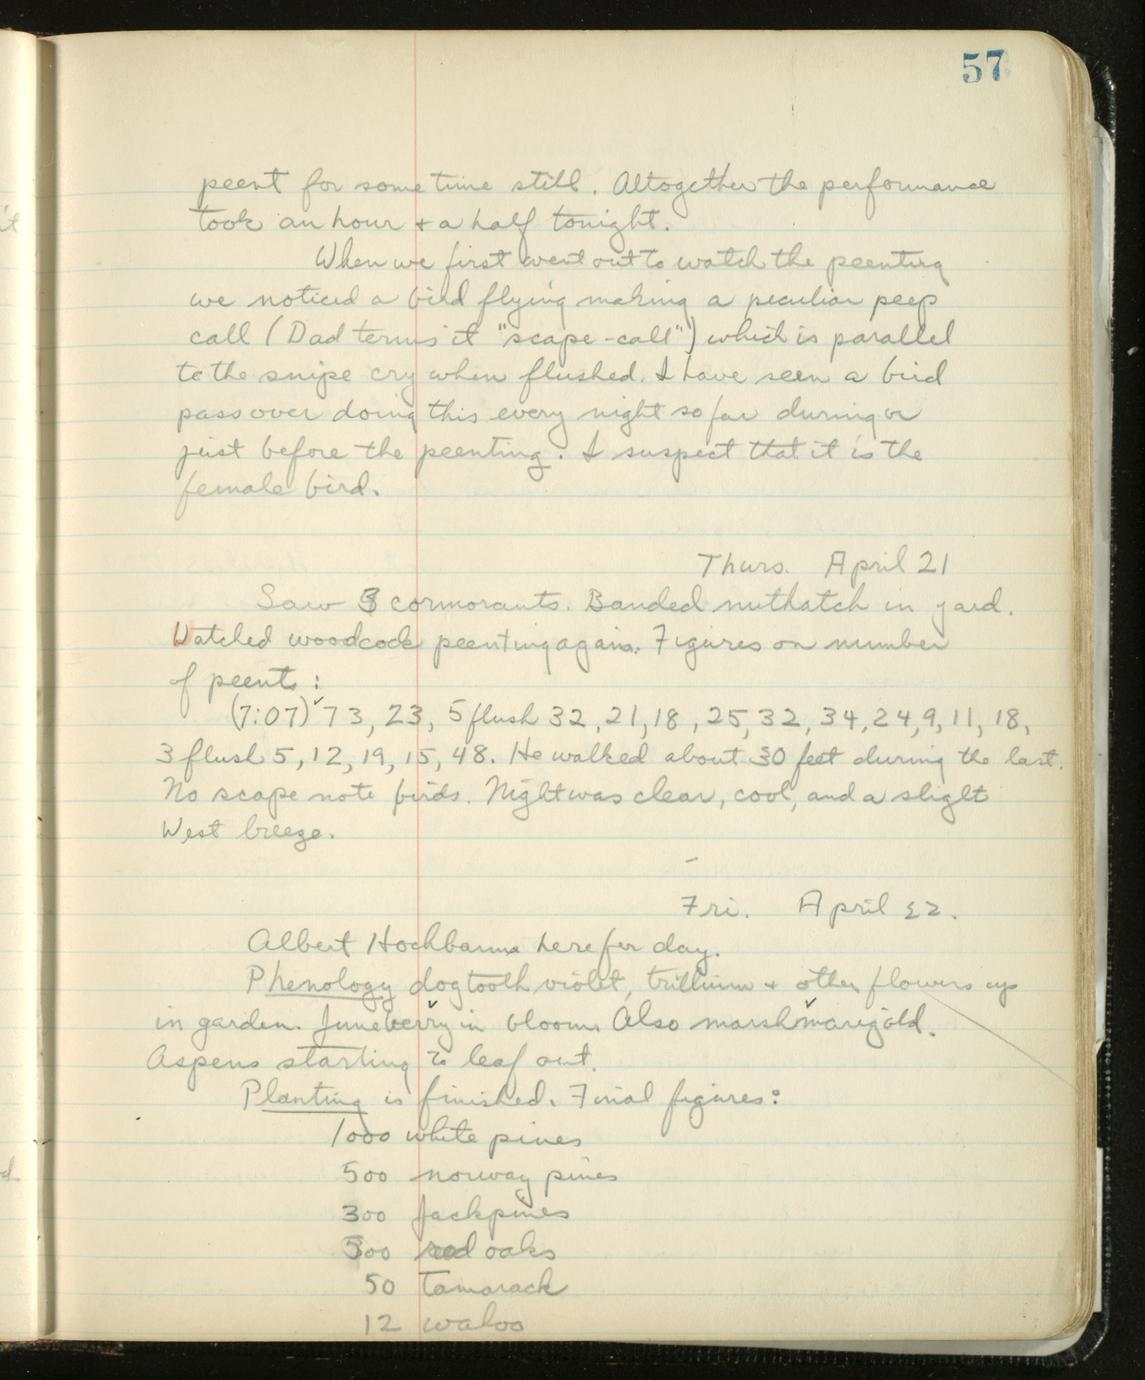 57
peent for some time still. Altogether the performance
took an hour + a half tonight.
When we first went out to watch the peenting
we noticed a bird flying making a peculiar peep
call (Dad terms it "scape-call") which is parallel
to the snipe cry when flushed. I have seen a bird
pass over doing this every night so far during or
just before the peenting. I suspect that it is the
female bird.
Thurs. April 21
Saw 3 cormorants. Banded nuthatch in yard.
Watched woodcock peenting again. Figures on number
of peents:
(7:07) 73, 23, 5 flush 32, 21, 18, 25, 32, 34, 24, 9, 11, 18,
3 flush 5, 12, 19, 15, 48. He walked about 30 feet during the last.
No scape note birds. Night was clear, cool, and a slight
West breeze.
Fri. April 22.
Albert Hochbaum here for day.
Phenology dogtooth violet, trillium + other flowers up
in garden. Juneberry in bloom. Also marsh marigold.
Aspens starting to leaf out.
Planting is finished. Final figures:
1000 white pines
500 norway pines
300 Jackpines
500 red oaks
50 Tamarack
12 wahoo